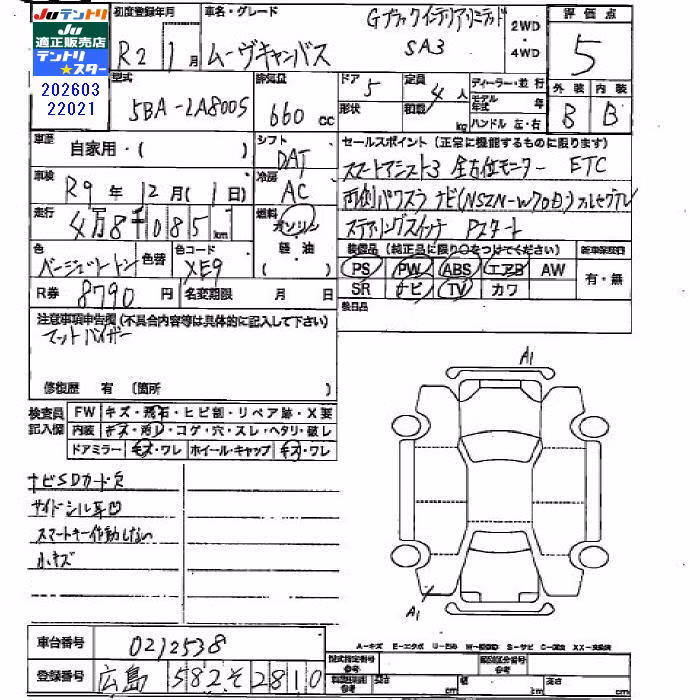 Juテントリ
Ju
適正販売店
テントリ
★スター
202603
22021
初度登録年月
R2 1月
車名・グレード
ムーヴキャンバス
Gブラックインテリアリミテッド
SA3
2WD
・
4WD
評価点
5
型式
5BA-LA800S
排気量
660 cc
ドア
5
定員
4人
形状
積載
kg
ディーラー・並行
モデル年式 年
ハンドル 左・右
外装 内装
B B
車歴
自家用・( )
シフト
DAT
セールスポイント (正常に機能するものに限ります)
スマートアシスト3 全方位モニター ETC
車検
R9年12月(1日)
冷房
AC
両側パワスラ ナビ(NSZN-W70D)フルセグTV
走行
4万8千085km
燃料
ガソリン
軽・油
( )
ステアリングスイッチ Pスタート
色
ベージュツートン
色替
色コード
XE9
装備品 (純正品に限り○をつけてください)
PS PW ABS エアB AW
SR ナビ TV カワ
新車保証書
有・無
R券 8790円
名変期限 月 日
後日品
注意事項申告欄 (不具合内容等は具体的に記入して下さい)
マットバイザー
修復歴 有 (箇所 )
検査員
記入欄
FW キズ・飛石・ヒビ割・リペア跡・X要
内装 キズ・汚レ・コゲ・穴・スレ・ヘタリ・破レ
ドアミラー キズ・ワレ ホイール・キャップ キズ・ワレ
ナビSDカード欠
サイドシル耳凹
スマートキー作動しない
小キズ
A1
A1
車台番号
0212538
登録番号
広島 582 そ 2810
A-キズ E-エクボ U-凹み S-サビ C-腐食 XX-交換済
型式指定番号
参考
類別区分番号
参考
長さ cm
幅 cm
高さ cm